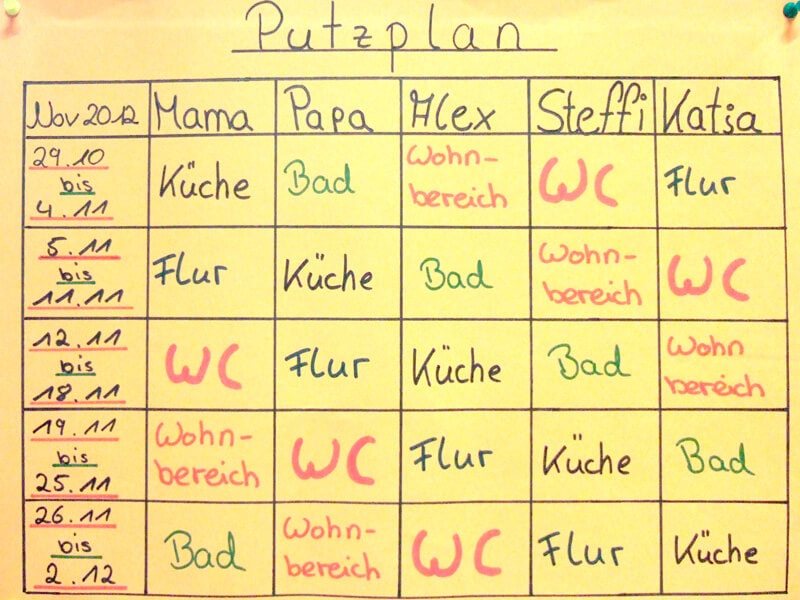 Putzplan
Nov 2012 Mama Papa Alex Steffi Katja
29.10 bis 4.11 Küche Bad Wohn-bereich WC Flur
5.11 bis 11.11 Flur Küche Bad Wohn-bereich WC
12.11 bis 18.11 WC Flur Küche Bad Wohn bereich
19.11 bis 25.11 Wohn-bereich WC Flur Küche Bad
26.11 bis 2.12 Bad Wohn-bereich WC Flur Küche